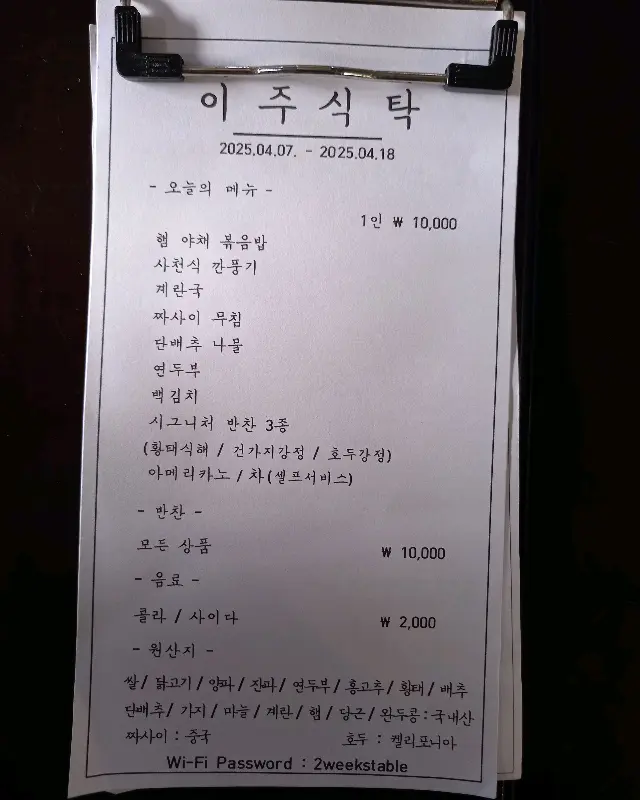 이 주 식 탁
2025.04.07. - 2025.04.18
- 오늘의 메뉴 -
1인 ₩ 10,000
햄 야채 볶음밥
사천식 깐풍기
계란국
짜사이 무침
단배추 나물
연두부
백김치
시그니처 반찬 3종
(황태식해 / 건가지강정 / 호두강정)
아메리카노 / 차(셀프서비스)
- 반찬 -
모든 상품 ₩ 10,000
- 음료 -
콜라 / 사이다 ₩ 2,000
- 원산지 -
쌀 / 닭고기 / 양파 / 잔파 / 연두부 / 홍고추 / 황태 / 배추
단배추 / 가지 / 마늘 / 계란 / 햄 / 당근 / 완두콩 : 국내산
짜사이 : 중국 호두 : 켈리포니아
Wi-Fi Password : 2weekstable